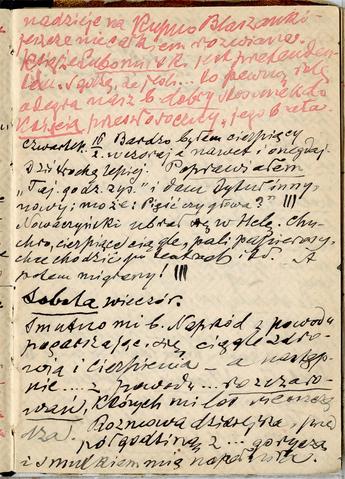 nadzieje na kupno Blaszanki
jeszcze nie całkiem rozwiane.
Książe Lubomirski jest pretenden
tem. Sądzę, że Pol... Co pewną rolę
odegra nasz b. dobry stosunek do
Księcia przeszłoroczny, jego brata.
Czwartek. Bardzo byłem cierpiący
wczoraj a nawet i onegdaj.
Dziś trochę lepiej. Poprawiałem
„Taj. godz. zys." i dam tytuł inny,
nowy; może: Pięść czy głowa?" !!!
Nowaczyński ubrał się w Helę. Chu-
chro, cierpiące ciągle, pali papierosy,
chce chodzić po teatrach itd. – A
potem migreny! !!!
Sobota wieczór.
Smutno mi b. Naprzód z powodu
pogarszającego się ciągle zdro-
wia i cierpienia – a następ-
nie ... z powodu ... rozczaro-
wań, których mi los nie oszczę
dza. Rozmowa dzisiejsza, pra
półgodzinna z ... goryczą
i smutkiem mię napełniła.